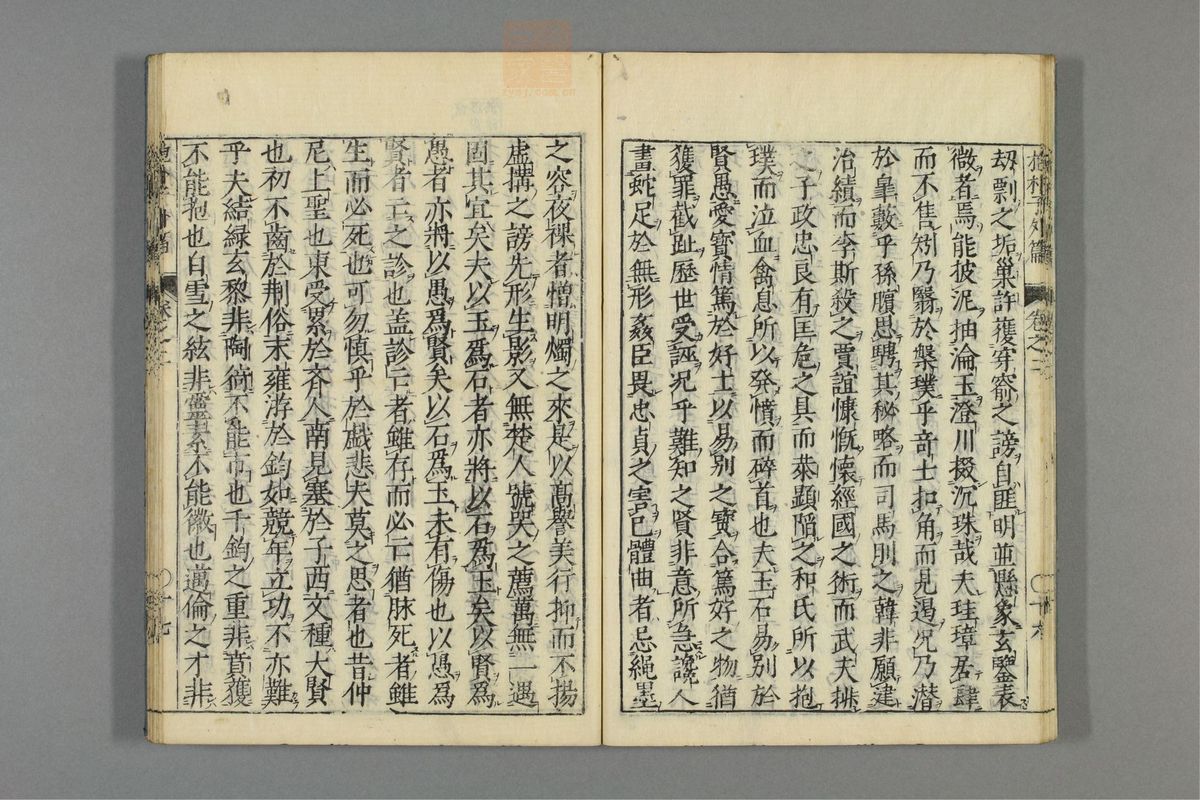 抱朴子外篇　卷之二　十六
劫剽之垢巢許獲穿窬之謗自匪明並懸象玄鑒表
微者焉能披泥抽淪玉澄川掇沉珠哉夫珪璋居肆
而不售矧乃翳於槃璞乎奇士扣角而見遏况乃潛
於臯藪乎孫臏思騁其秘略而司馬刖之韓非願建
治績而李斯殺之賈誼慷慨懷經國之術而武夫排
之子政忠良有匡危之具而恭顯陷之和氏所以抱
璞而泣血禽息所以発憤而碎首也夫玉石易別於
賢愚愛寳情篤於好士以易別之寳合篤好之物猶
獲罪截趾歷世受誣况乎難知之賢非意所急讒人
畫蛇足於無形姦臣畏忠貞之害己體曲者忌繩墨
之容夜裸者憎明燭之來是以髙譽美行抑而不揚
虛搆之謗先形生影又無楚人號哭之薦萬無一遇
固其宜矣夫以玉爲石者亦將以石爲玉矣以賢爲
愚者亦將以愚爲賢矣以石爲玉未有傷也以愚爲
賢者亡之診也盖診亡者雖存而必亡猶脉死者雖
生而必死也可勿慎乎於戲悲夫莫之思者也昔仲
尼上聖也東受累於齊人南見塞於子西文種大賢
也初不齒於荆俗末雍游於鈞如競年立功不亦難
乎夫結緑玄黎非陶猗不能市也千鈞之重非賁獲
不能抱也白雪之絃非靈素不能徽也邁倫之才非
卷之二　十七